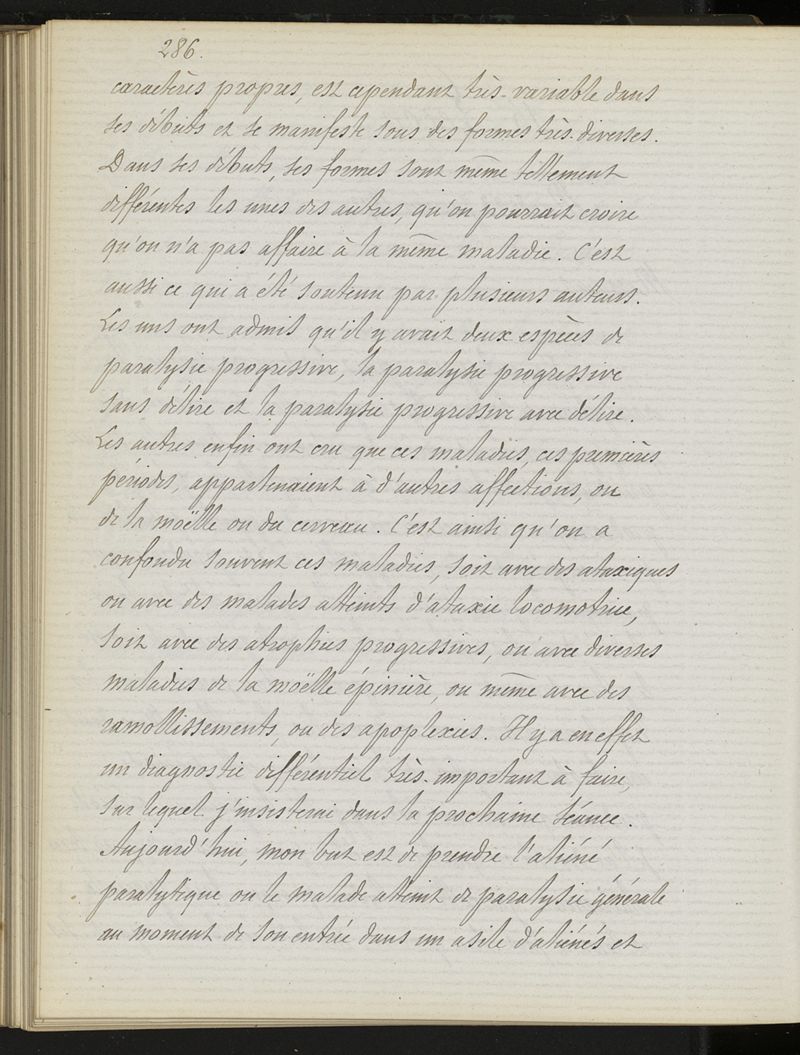 286.
caractères propres, est cependant très-variable dans
ses débuts et se manifeste sous des formes très-diverses.
Dans ses débuts, ses formes sont même tellement
différentes les unes des autres, qu'on pourrait croire
qu'on n'a pas affaire à la même maladie. C'est
aussi ce qui a été soutenu par plusieurs auteurs.
Les uns ont admis qu'il y avait deux espèces de
paralysie progressive, la paralysie progressive
sans délire et la paralysie progressive avec délire.
Les autres enfin ont cru que ces maladies, ces premières
périodes, appartenaient à d'autres affections, ou
de la moëlle ou du cerveau. C'est ainsi qu'on a
confondu souvent ces maladies, soit avec des ataxiques
ou avec des malades atteints d'ataxie locomotrice,
soit avec des atrophies progressives, ou avec diverses
maladies de la moëlle épinière, ou même avec des
ramollissements, ou des apoplexies. Il y a en effet
un diagnostic différentiel très-important à faire,
sur lequel j'insisterai dans la prochaine séance.
Aujourd'hui, mon but est de prendre l'aliéné
paralytique ou le malade atteint de paralysie générale
au moment de son entrée dans un asile d'aliénés et